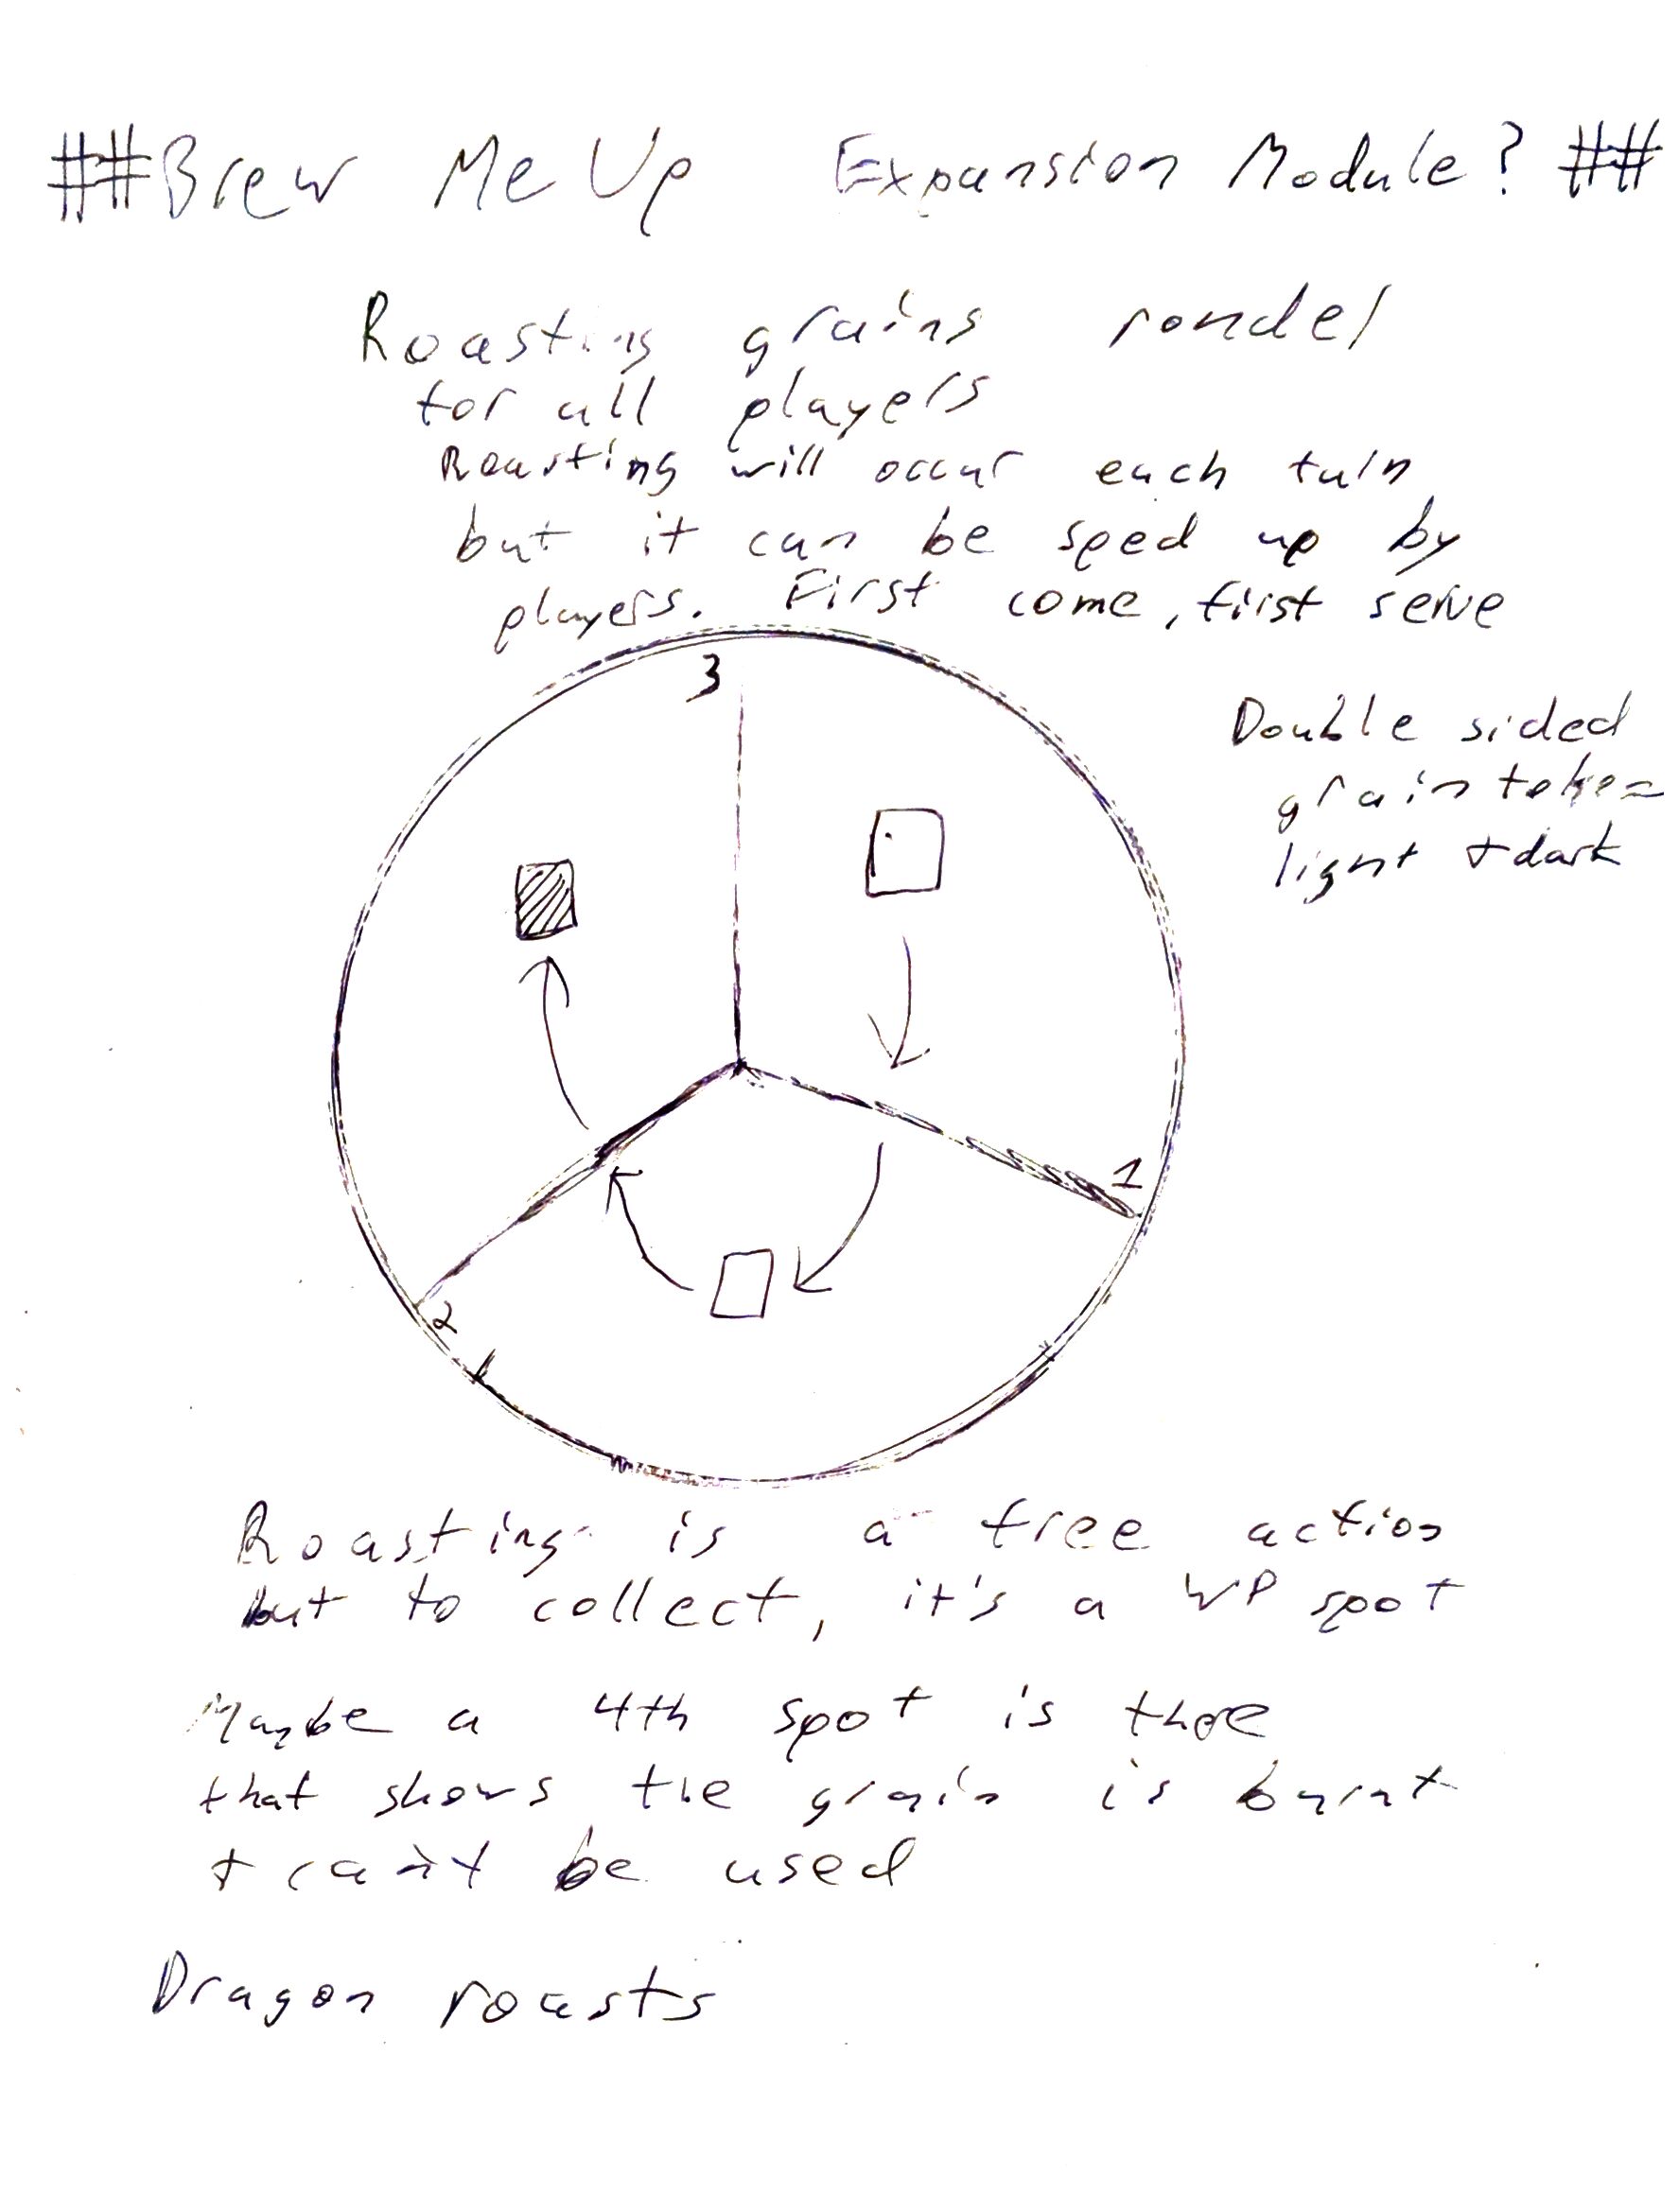 ##Brew Me Up Expansion Module? ##
Roasting grains rondel
for all players
Roasting will occur each turn
but it can be sped up by
players. First come, first serve
3
Double sided
grain token
light + dark
1
2
Roasting is a free action
but to collect, it's a WP spot
Maybe a 4th spot is there
that shows the grain is burnt
+ can't be used
Dragon roasts